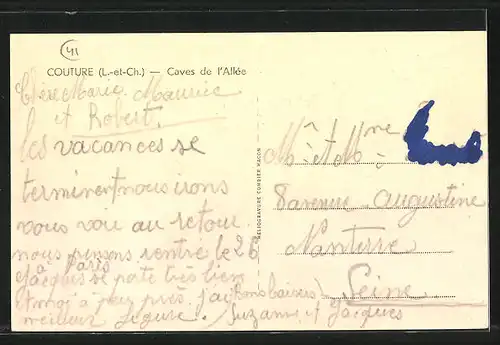 41
COUTURE (L.-et-Ch.) — Caves de l'Allée
Chère Marie Maurice
et Robert.
Les vacances se
terminent nous irons
vous voir au retour
nous pensons rentré le 26
à Paris
Jacques se porte très bien
et moi à peu près. j'ai
meilleur figure. bons baisers
Suzanne et Jacques
HELIOGRAVURE COMBIER MACON
Mr et Mme
8 avenue Augustine
Nanterre
Seine